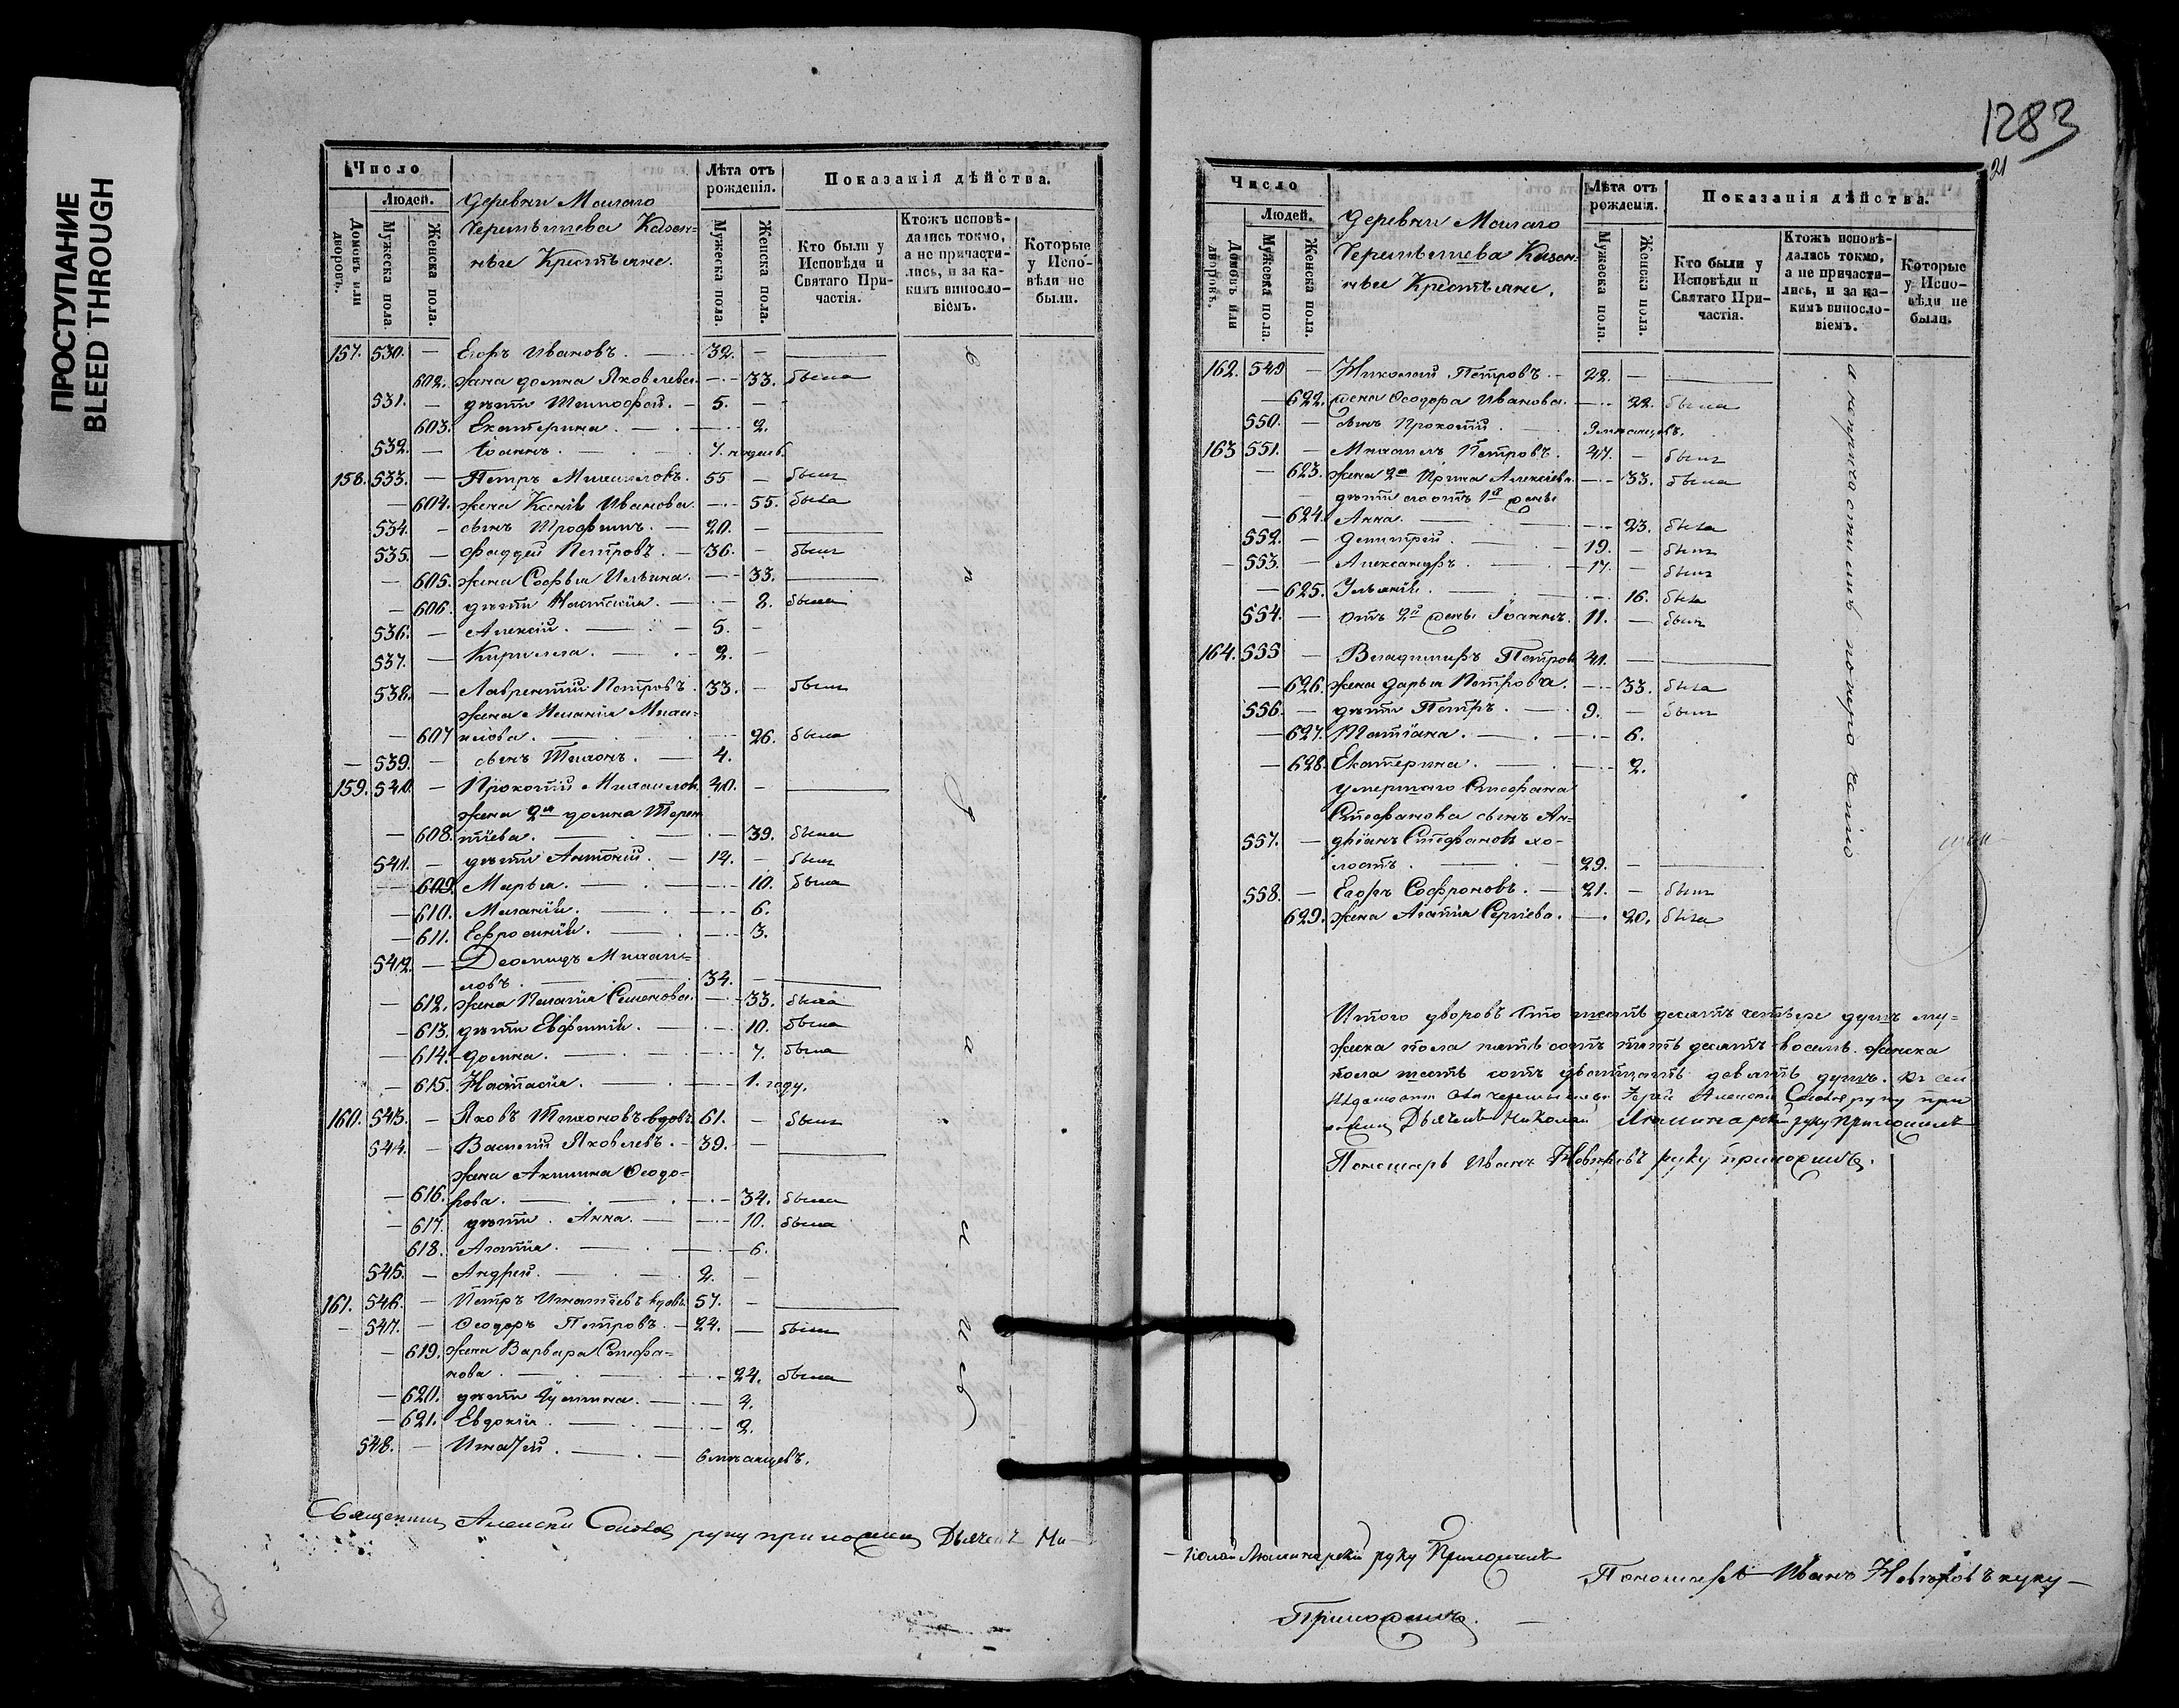 ПРОСТУПАНИЕ
BLEED THROUGH
Число
Людей.
Домовъ или дворовъ.
Мужеска пола.
Женска пола.
Деревни Малаго
Чернышева Казен=
ные Крестьяне.
Лѣта отъ рожденія.
Мужеска пола.
Женска пола.
Показанія дѣйства.
Кто были у Исповѣди и Святаго Причастія.
Ктожъ исповѣдались токмо, а не причастились, и за какимъ винословіемъ.
Которые у Исповѣди не были.
157. 530. — Егоръ Ивановъ. — 32. —
602. жена Домна Яковлева — 33. была
531. — дѣти Тимофей. — 5. —
603. Екатерина. — 2.
532. — Іоаннъ. — 7. недель.
158. 533. — Петръ Михаиловъ. 55 — былъ
— 604. жена Ксенія Иванова — 55. была
534. — сынъ Трофимъ. — 20. —
535. — Фаддей Петровъ. — 36. — былъ
— 605. жена Софья Ильина. — 33.
— 606. дѣти Настасія. — 8. была
536. — Алексій. — 5. —
537. — Кирилла. — 2. —
538. — Лаврентій Петровъ. 33. — былъ
жена Меланія Михаи=
— 607 лова. — 26. была
— 539. — сынъ Тихонъ. — 4.
159. 540. — Прокопій Михаиловъ 40. —
жена 2я Домна Терен
— 608. тіева. — 39. была
541. — дѣти Антоній. — 14. — былъ
— 609. Марья. — 10. была
— 610. Меланія. — 6.
— 611. Ефросинія. — 3.
542. — Деомидъ Михаи=
ловъ. — 34. —
— 612. жена Пелагія Семенова. — 33. была
— 613. дѣти Евфимія. — 10. была
— 614. Домна. — 7. была
— 615. Настасія. — 1. году.
160. 543. — Яковъ Тихоновъ вдовъ 61. — былъ
544. — Василій Яковлевъ. — 39. —
жена Акилина Ѳеодо=
— 616. рова. — 34. была
— 617. дѣти. Анна. — 10. была
618. Агафія. — 6.
545. — Андрей. — 2. —
161. 546. — Петръ Игнатіевъ вдовъ 57. —
— 547. — Ѳеодоръ Петровъ. — 24. — былъ
— 619. жена Варвара Стефа=
нова. — 24. была
— 620. дѣти Іулитта. — 4.
— 621. Евдокія. — 2.
548. — Игнатій. — 6 мѣсяцевъ.
Священникъ Алексій руку приложилъ Дьячекъ Ни-
1283
21
Число
Людей.
Домовъ или дворовъ.
Мужеска пола.
Женска пола.
Деревни Малаго
Чернышева Казен=
ные Крестьяне.
Лѣта отъ рожденія.
Мужеска пола.
Женска пола.
Показанія дѣйства.
Кто были у Исповѣди и Святаго Причастія.
Ктожъ исповѣдались токмо, а не причастились, и за какимъ винословіемъ.
Которые у Исповѣди не были.
162. 549 — Николай Петровъ. — 22. —
— 622. жена Ѳеодора Иванова. — 22. была
550. — сынъ Прокопій. 9 мѣсяцевъ.
163 551. — Михаилъ Петровъ. 47. — былъ
— 623. жена 2я Ирина Алексіева. — 33. была
— дѣти его отъ 1й жены
— 624. Анна. — 23. была
552. — Димитрій. — 19. — былъ
— 553. — Александръ. — 17. — былъ
— 625. Ульянія. — 16. была
554. — Отъ 2й жены Іоаннъ. 11. — былъ
164. 555 — Владимиръ Петров 41. —
— 626. жена Дарья Петрова. — 33. была
556. — дѣти Петръ. — 9. — былъ
— 627. Татіана. — 6.
— 628. Екатерина. — 2.
умершаго Стефана
Стефанова сынъ Ан=
557. — дріанъ Стефановъ хо=
лостъ. — 29. —
558. — Егоръ Софроновъ. — 21. — былъ
629. жена Агапія Сергіева. — 20. была
Итого дворовъ Сто шесть десятъ четыре душъ му=
жеска пола пять сотъ пять десятъ восемь. женска
пола шесть сотъ двадцать девять душъ. Къ сей
Іерей Алексій руку при
Дьячекъ Николай руку приложилъ
Пономарь Иванъ руку приложилъ.
— колай руку Приложилъ
Пономарь Иванъ руку —
Приложилъ.